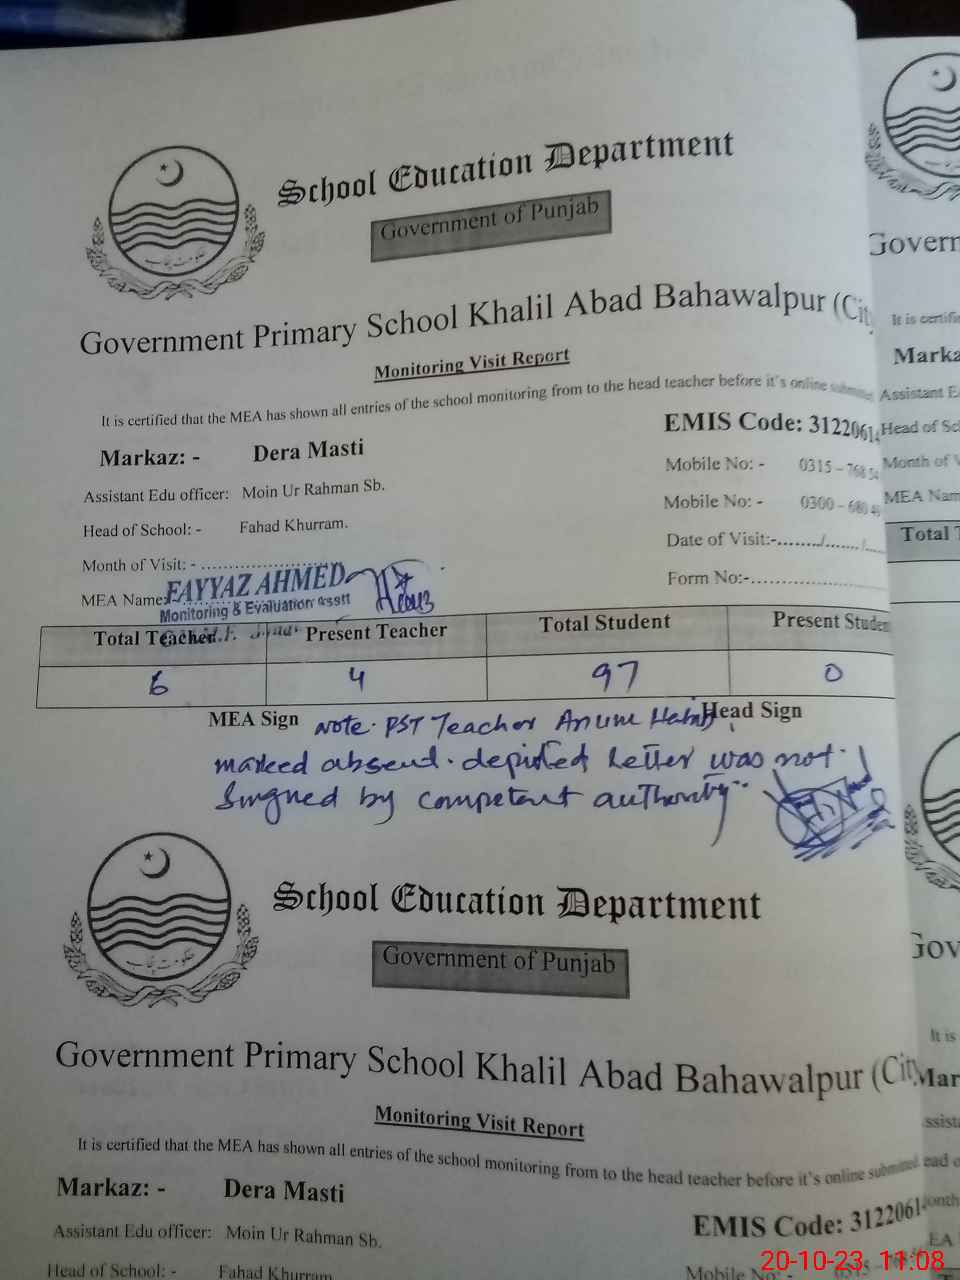 School Education Department
Government of Punjab
Government Primary School Khalil Abad Bahawalpur (City
Monitoring Visit Report
It is certified that the MEA has shown all entries of the school monitoring from to the head teacher before it's online submitted
Markaz: - Dera Masti EMIS Code: 3122061
Assistant Edu officer: Moin Ur Rahman Sb. Mobile No: - 0315 – 768
Head of School: - Fahad Khurram. Mobile No: - 0300 – 680
Month of Visit: - Date of Visit:-......../......./.....
MEA Name: FAYYAZ AHMED Form No:-
Monitoring & Evaluation Asstt
Total Teacher Present Teacher Total Student Present Studen
6 4 97 0
MEA Sign Head Sign
Note. PST Teacher Anum
marked absend. depicted Letter was not
Singned by competent authority
School Education Department
Government of Punjab
Government Primary School Khalil Abad Bahawalpur (City
Monitoring Visit Report
It is certified that the MEA has shown all entries of the school monitoring from to the head teacher before it's online submitted
Markaz: - Dera Masti EMIS Code: 3122061
Assistant Edu officer: Moin Ur Rahman Sb. Mobile No: - 0315
Head of School: - Fahad Khurram
Govern
It is certifi
Marka
Assistant E
Head of Sc
Month of V
MEA Nam
Total T
Gov
It is
Mar
20-10-23, 11:08